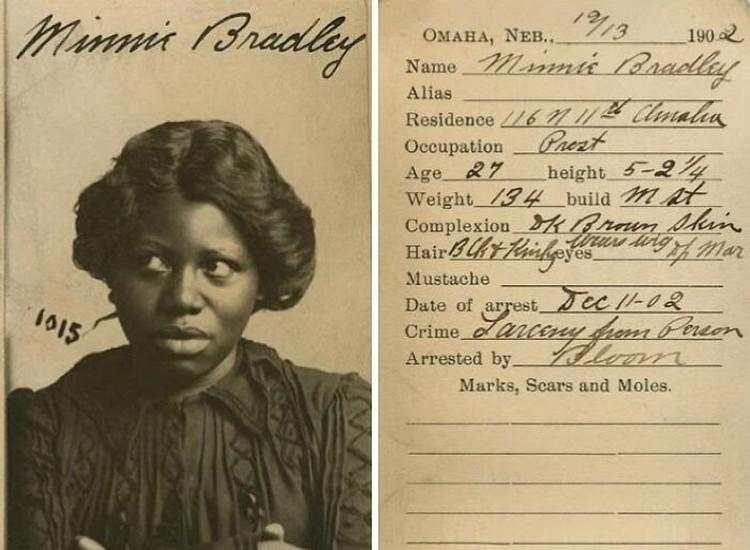 Minnie Bradley
1015
OMAHA, NEB., 12/13 1902
Name Minnie Bradley
Alias
Residence 116 N 11th Omaha
Occupation Prost
Age 27 height 5-2 1/4
Weight 134 build M St
Complexion Dk Brown Skin
Hair Blk & Kinky wears wig eyes Dp Mar
Mustache
Date of arrest Dec 11-02
Crime Larceny from Person
Arrested by Bloom
Marks, Scars and Moles.